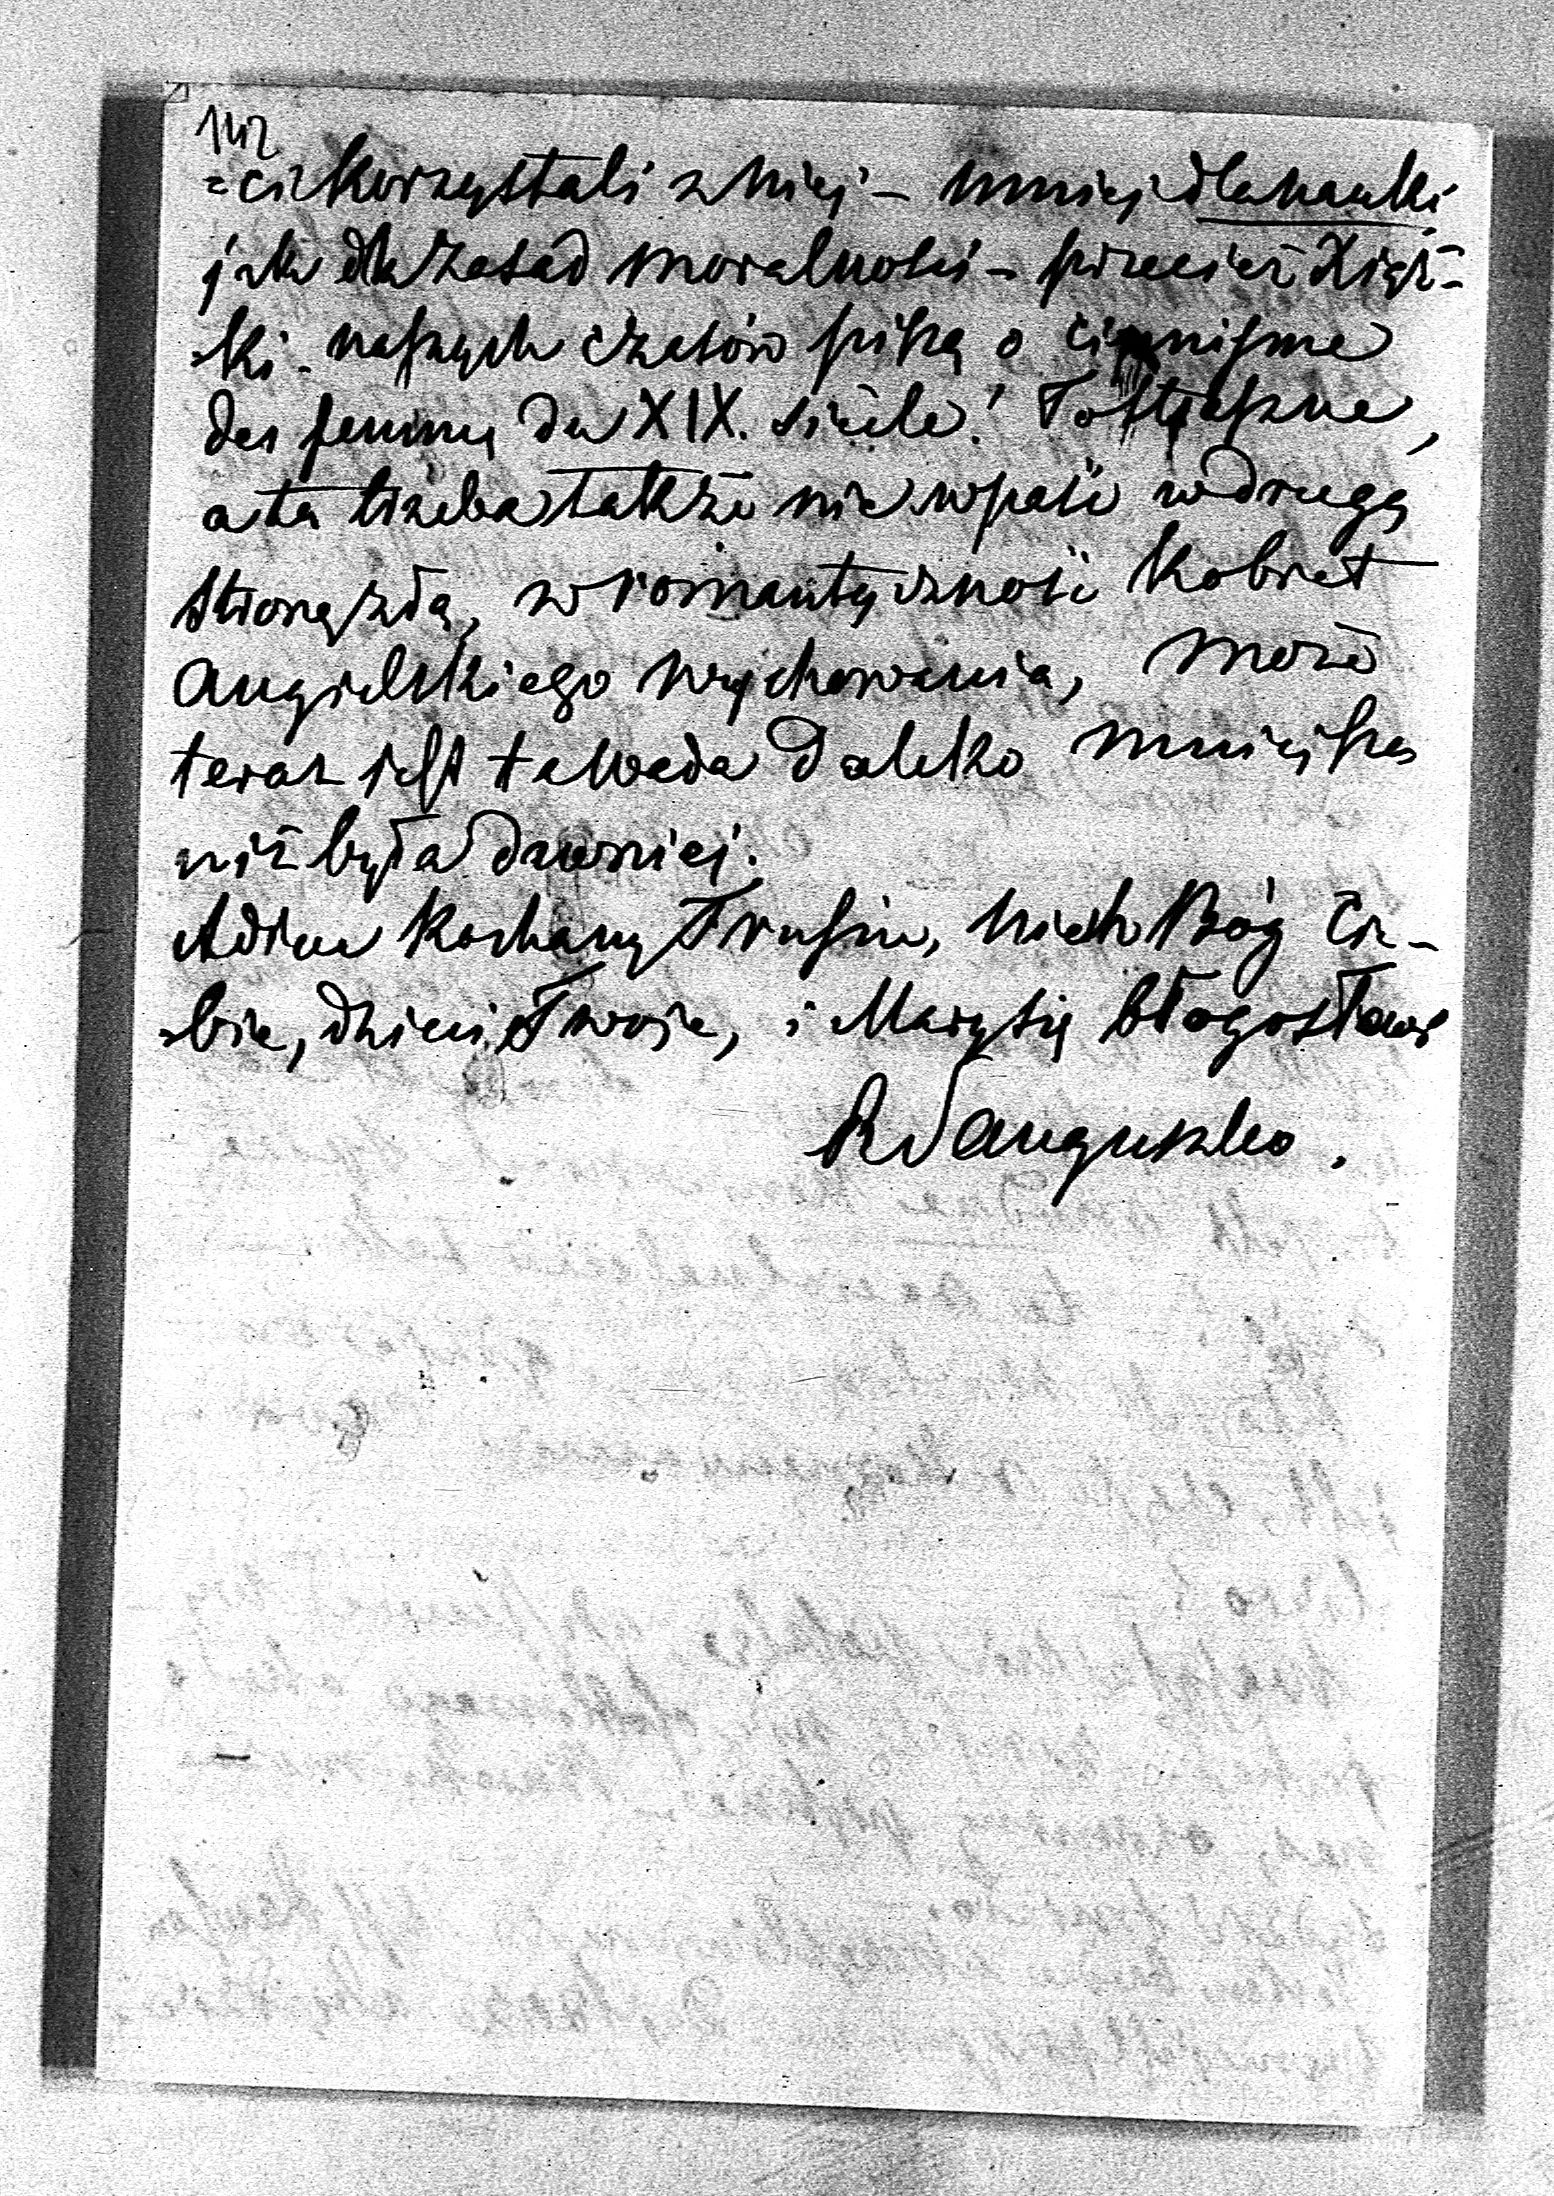 142
=ci korzystali z niej – mniej dla nauki
jak dla zasad moralności – przecież Xiąż-
-ki naszych czasów piszą o cinnisme
des femmes du XIX. siècle! To straszne,
a tu trzeba także nie wpaść w drugą
stronę złą, w romantyczność kobiet
angielskiego wychowania, może
teraz jest ta wada daleko mniejszą
niż była dawniej.
Adieu kochany Trusiu, niech Bóg Cie-
-bie, dzieci Twoje, i Marysię błogosławi
R Sanguszko.